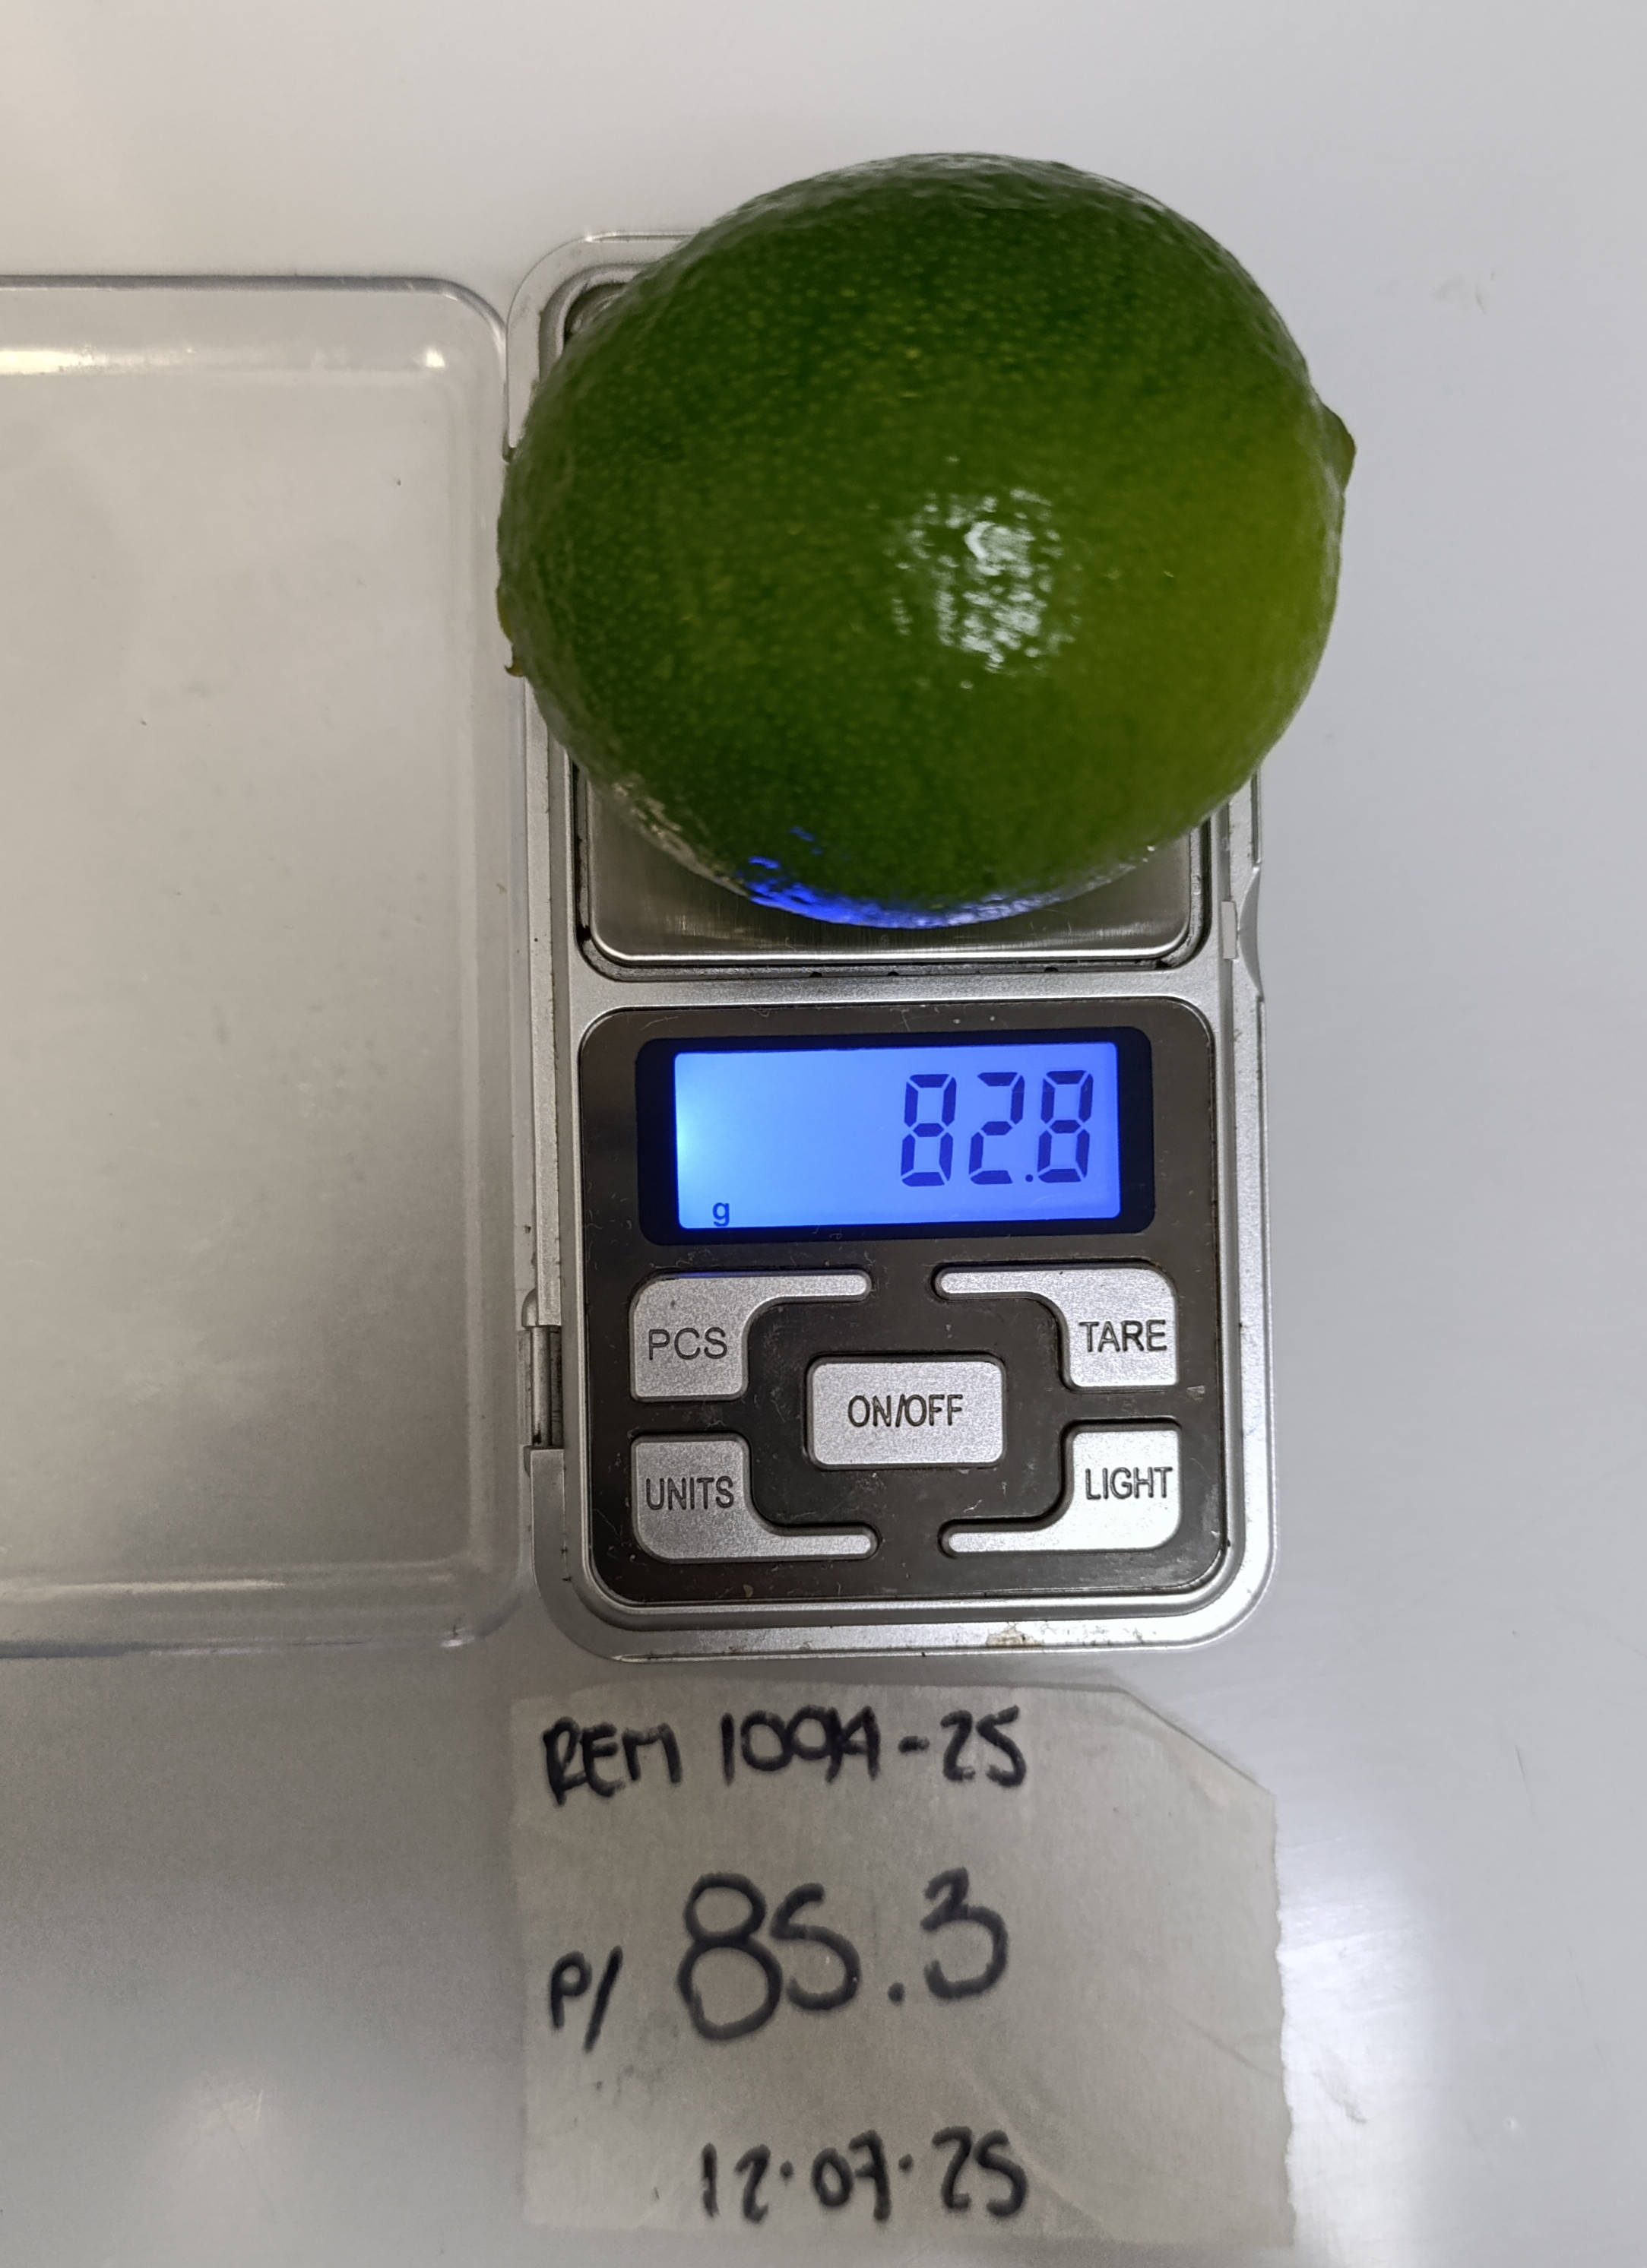 82.8
g
PCS
TARE
ON/OFF
UNITS
LIGHT
REM 1094-25
P/ 85.3
12.07.25